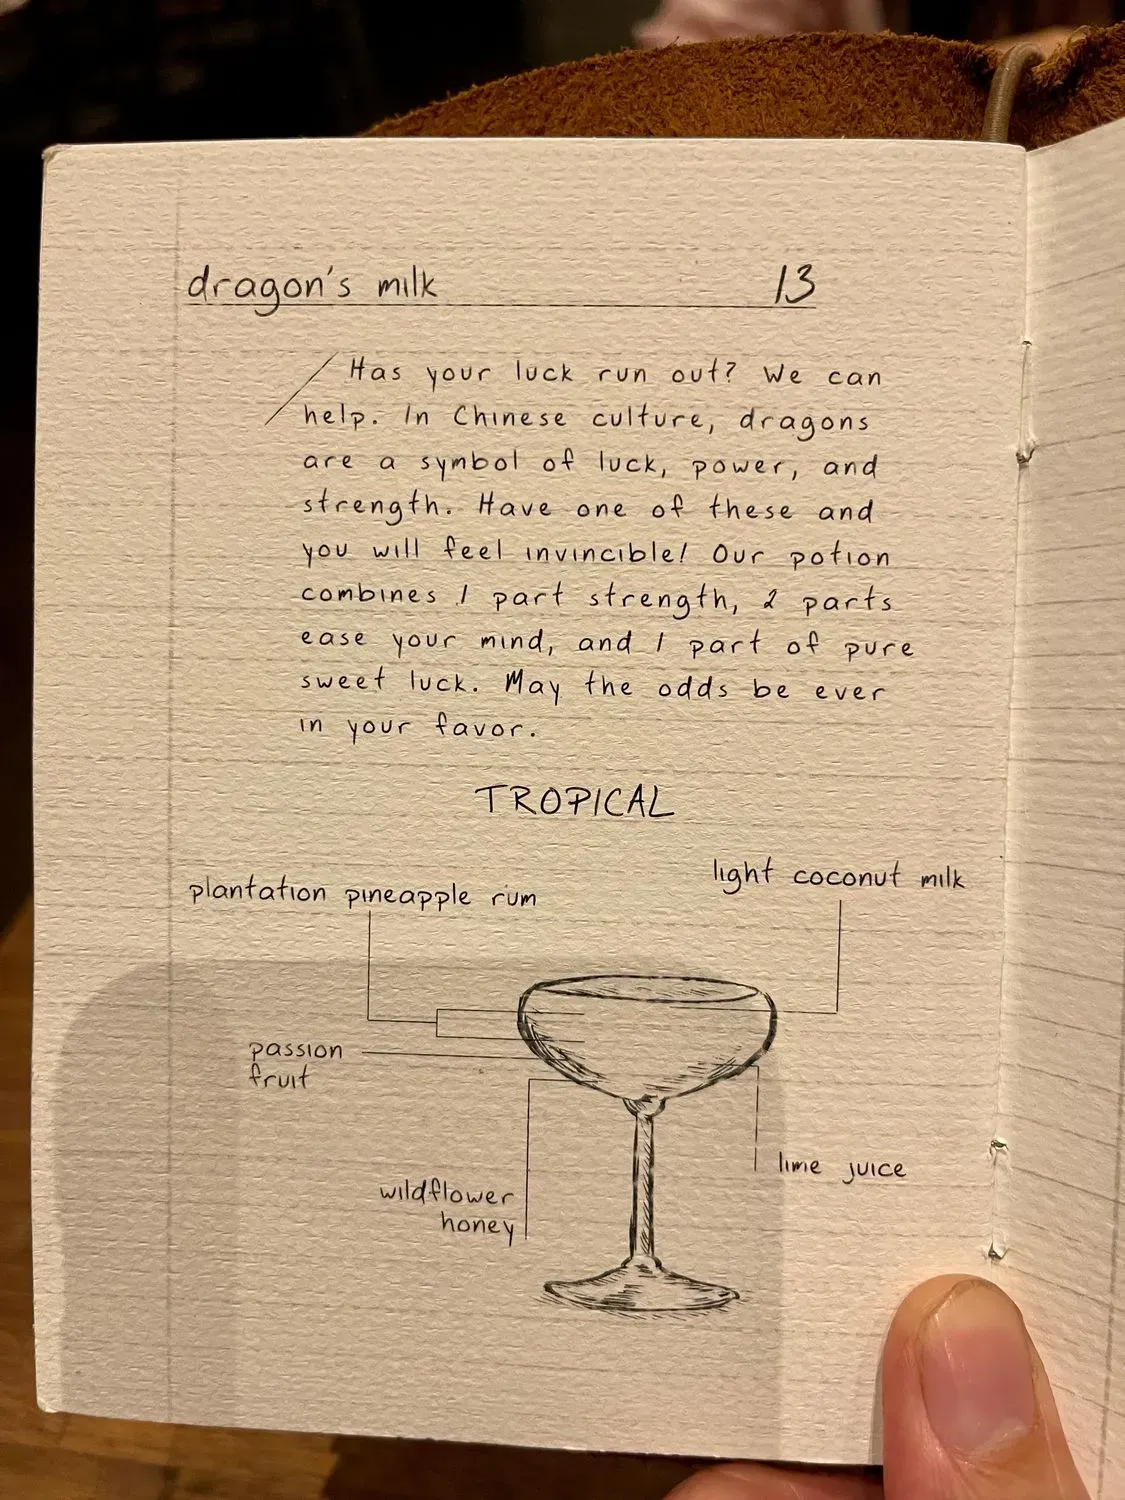 dragon's milk 13
Has your luck run out? We can
help. In Chinese culture, dragons
are a symbol of luck, power, and
strength. Have one of these and
you will feel invincible! Our potion
combines 1 part strength, 2 parts
ease your mind, and 1 part of pure
sweet luck. May the odds be ever
in your favor.
TROPICAL
light coconut milk
plantation pineapple rum
passion
fruit
lime juice
wildflower
honey